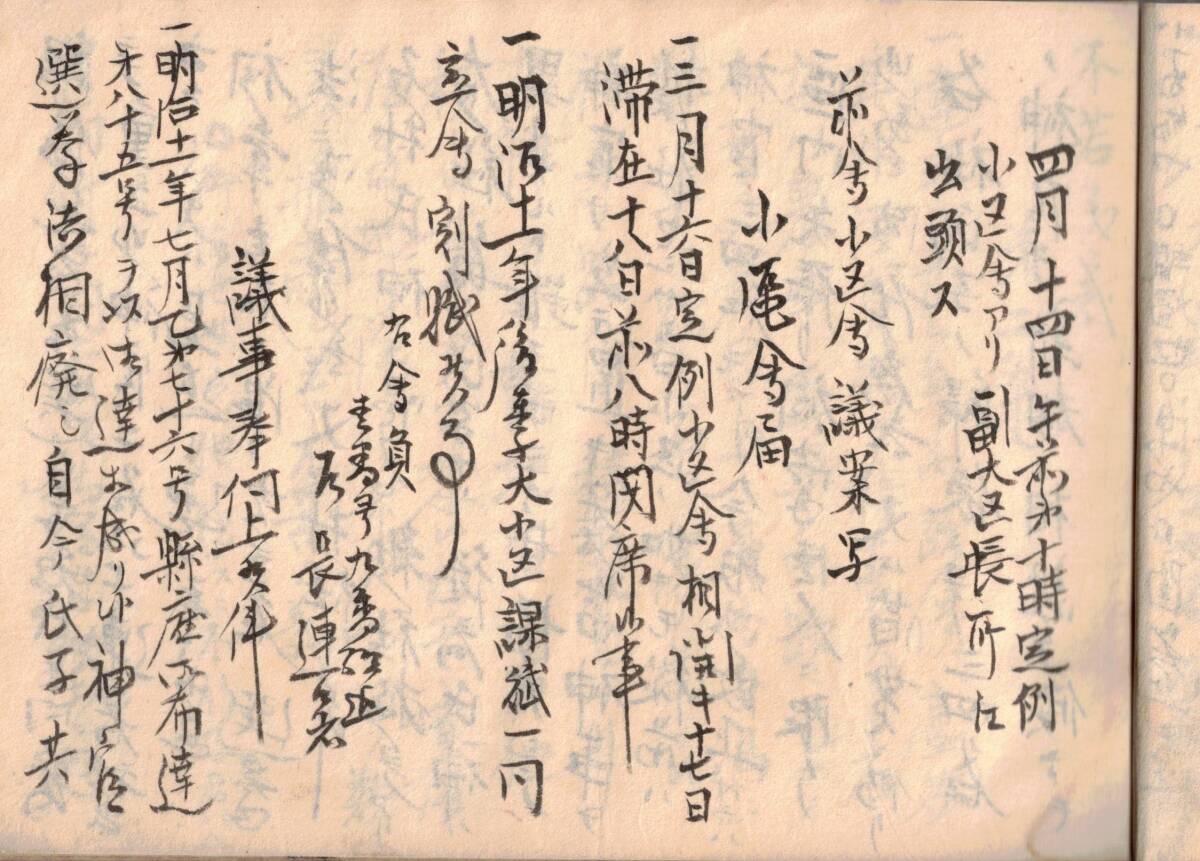 四月十四日午前第十時定例
小区会アリ副大区長所江
出頭ス
前会小区会議案写
小区会届
一三月十六日定例小区会相開キ十七日
滞在十八日前八時関席候事
一明治十一年後半季大小区課賦一同
立会割賦候事
右会員
壱番号九番迄
戸長連名
議事奉伺上候件
一明治十一年七月乙第七十六号縣庁御布達
第八十五号ヲ以御達ニ相成リ候神官
選挙法相廃シ自今氏子共